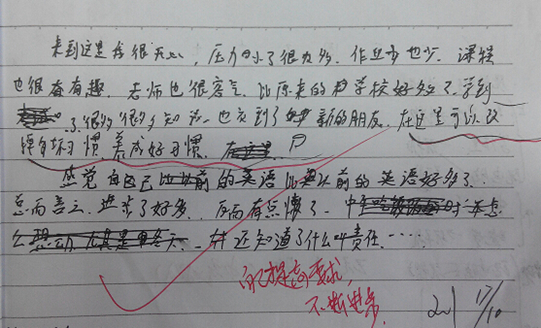 来到这里我很开心，压力小了很多。作业少也少，课程
也很有趣，老师也很客气，比原来的学校好多了，学到
了很多很多知识，也交到了新的朋友，在这里可以改
掉坏习惯，养成好习惯。
感觉自己的英语比以前的英语好多了，
总而言之，进步了好多，反而有点懂了，
并还知道了什么叫责任……
自己提高要求，
不断进步
17/10